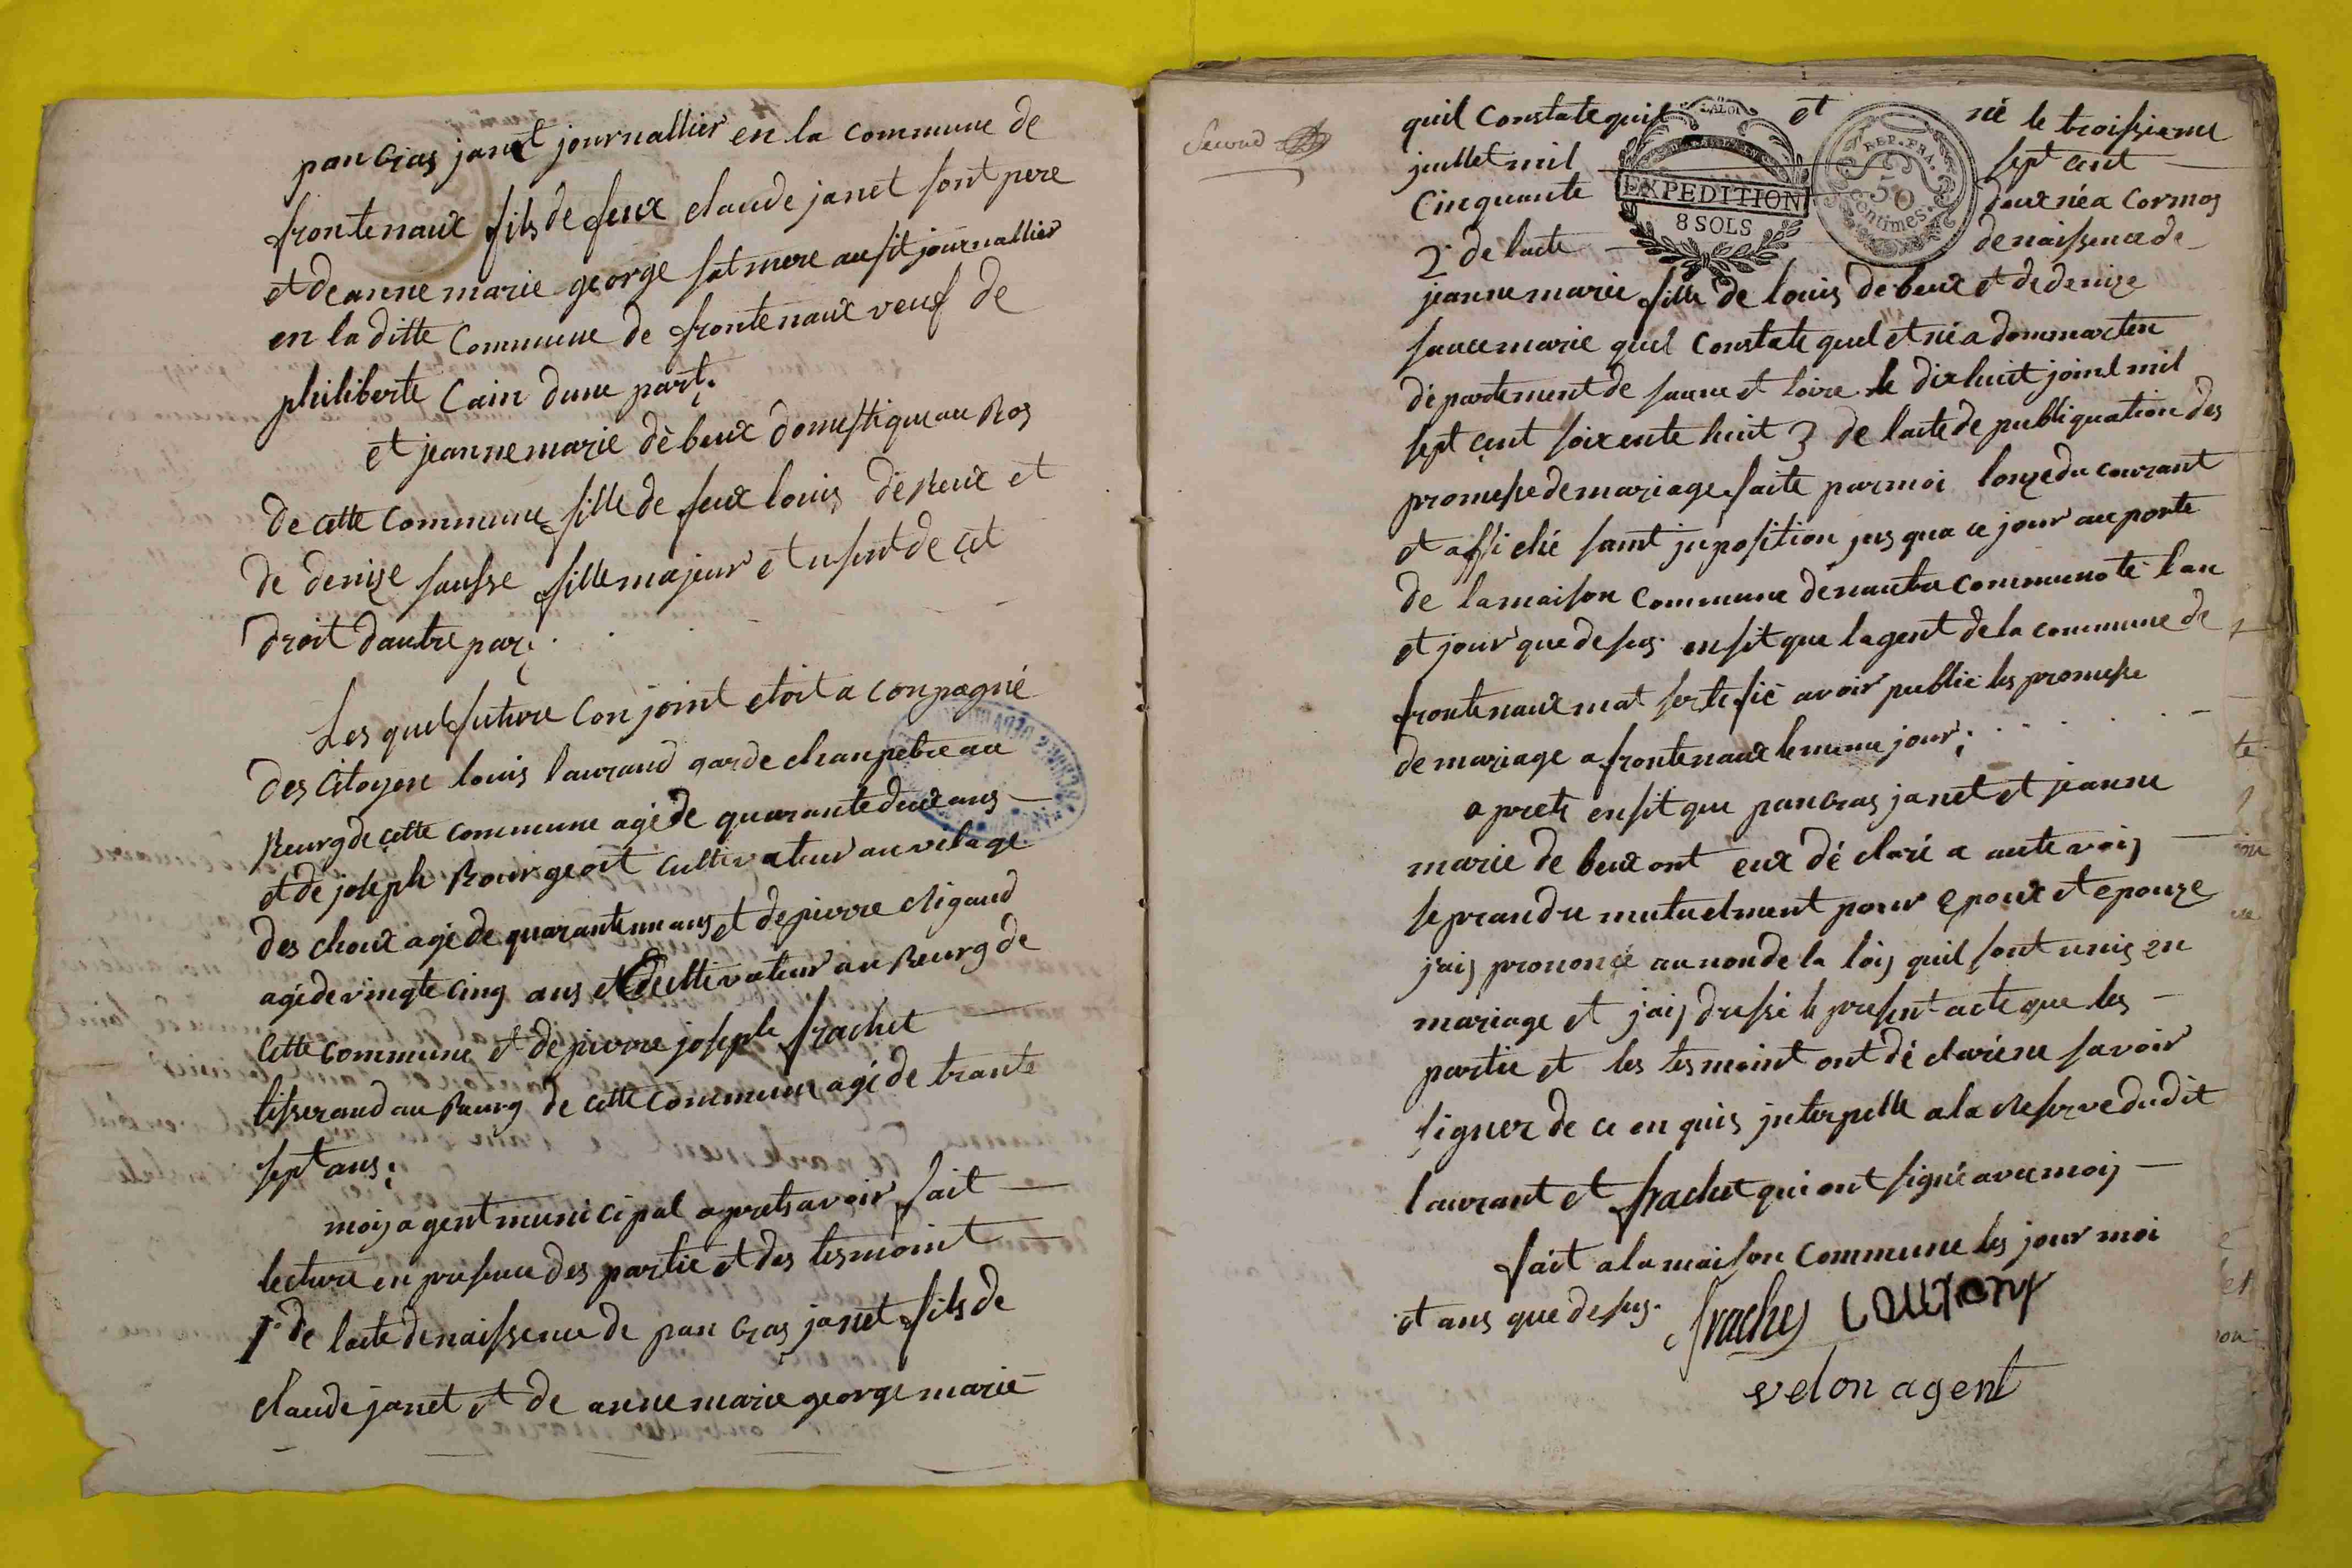 pancras janet journallier en la commune de
frontenaux fils de feux claude janet sont pere
et de anne marie george sat mere ausit journallier
en la ditte Commune de frontenaux veuf de
philiberte Cain dune part;
et jeanne marie dè beux domestique au Bos
de cette Commune fille de feux louis de Beux et
de denize sausse fille majeur et usent de cet
droit dautre par;
Les quel future Conjoint etoit a conpagné
des Citoyen louis laurand garde chanpetre au
Bourg de cette commune agé de quarante deux ans
et dè joseph Bourgeoit cultivateur au vilage
des choux agé de quarante un ans et de pierre Rigaud
agé de vingte cinq ans et Cultivateur au Bourg de
cette commune et dè pierre joseph frachet
tisserand au Bourg de cette commune agé de trante
sept ans;
moij agent municipal aprets avoir fait
lecture en presence des partie et des tesmoint
1° de lacte de naissence de pancras janet fils de
claude janet et de anne marie george marié
Second
quil Constate quil et né le troissieme
juillet mil sept cent
Cinquante deux né a Cormos
2° de lacte de naissence de
jeanne marie fille de louis de beux et de denize
sauce marie quel Constate quel et né a dommarten
dè partement de saune et loire le dix huit joint mil
sept cent soixente huit 3 de lacte de publiquation des
promesse de mariage faite par moi lonze du courant
et affiché saint jnposition jus qua ce jour au porte
de la maison Commune de nautre communoté lan
et jour que desus. ensit que lagent de la commune de
frontenaux mat sertifié avoir publié les promesse
de mariage a frontenaux le meme jour;
aprets ensit que pancras janet et jeanne
marie de beux ont eux dé claré a aute voij
se prandre mutuelment pour epoux et epouze
jaij prononcé au non de la loij quil sont unis en
mariage et jaij dressé le present acte que les
partie et les tesmoint ont dé claré ne savoir
signer de ce en quis jnterpelle a la Reserve dudit
laurant et frachet qui ont signé avec moij
fait a la maison Commune les jour moi
et ans que desus. frachet laurant
velon agent
LA LOI
EXPEDITION
8 SOLS
REP. FRA.
50
centimes